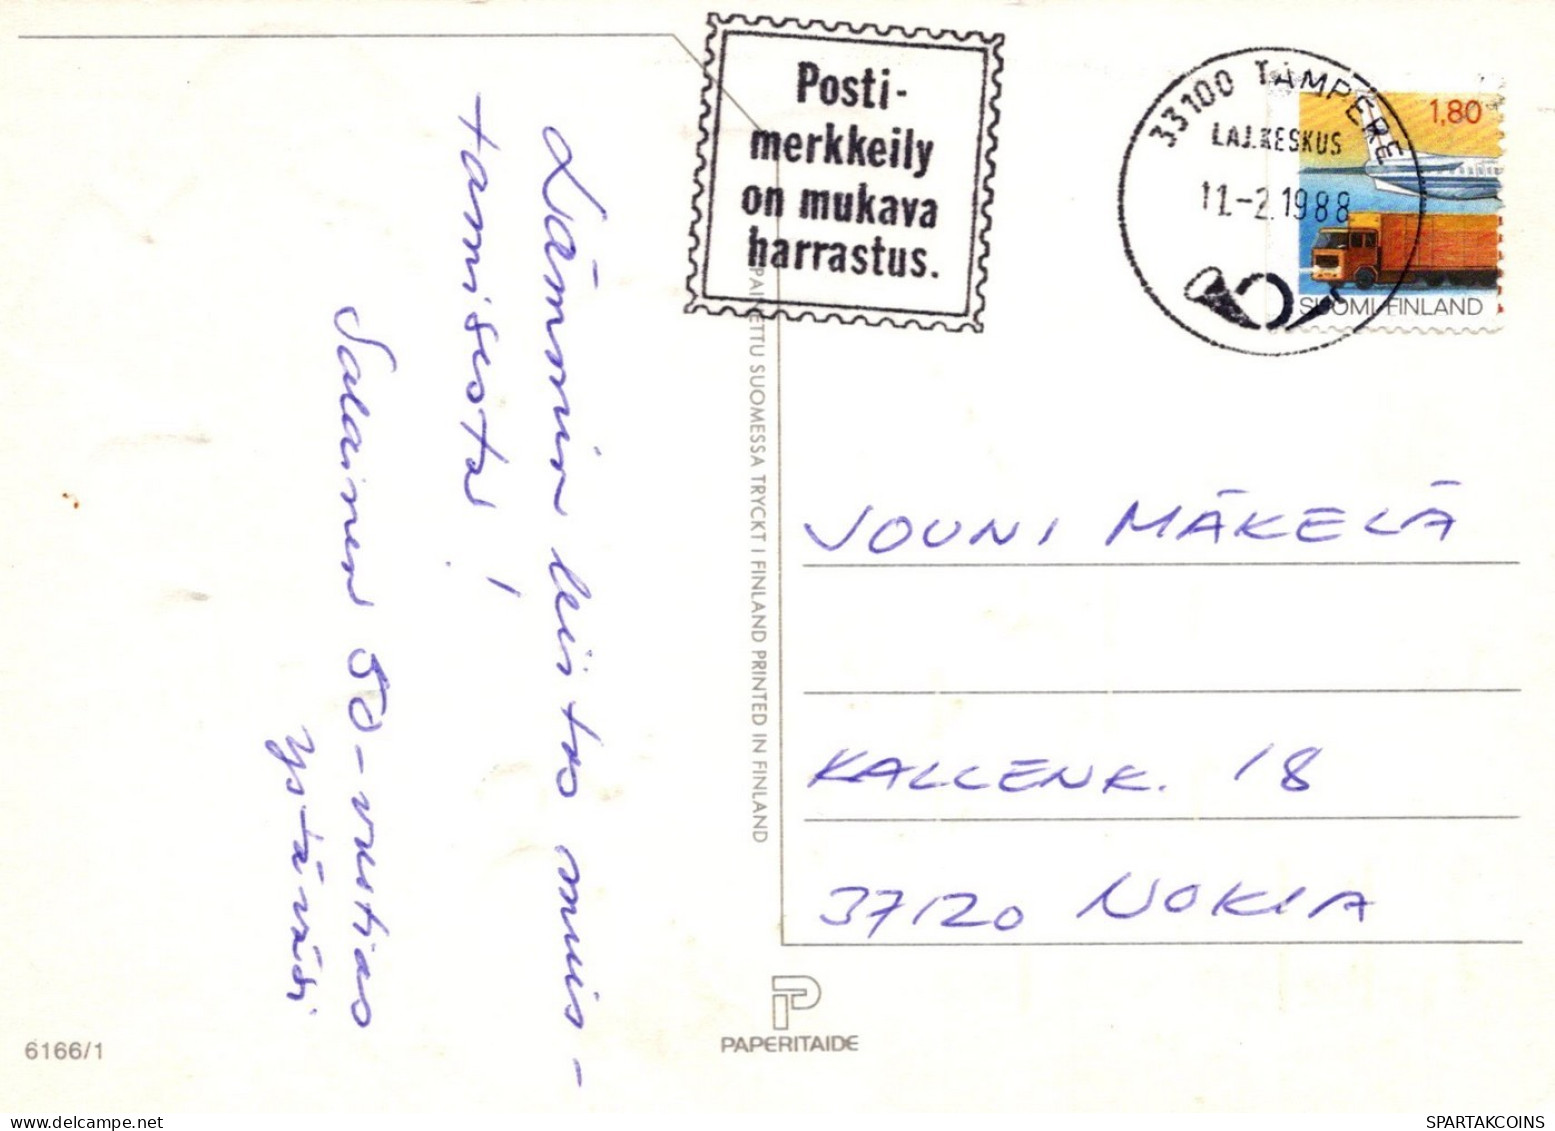 Posti-
merkkeily
on mukava
harrastus.
33100 TAMPERE
LAJ.KESKUS
11.-2.1988
1,80
SUOMI FINLAND
Lämmin kiitos muis-
tamisesta!
Salainen 50-vuotias
ystäväsi
PAINETTU SUOMESSA TRYCKT I FINLAND PRINTED IN FINLAND
JOUNI MÄKELÄ
KALLENK. 18
37120 NOKIA
6166/1
PAPERITAIDE
delcampe.net
SPARTAKCOINS